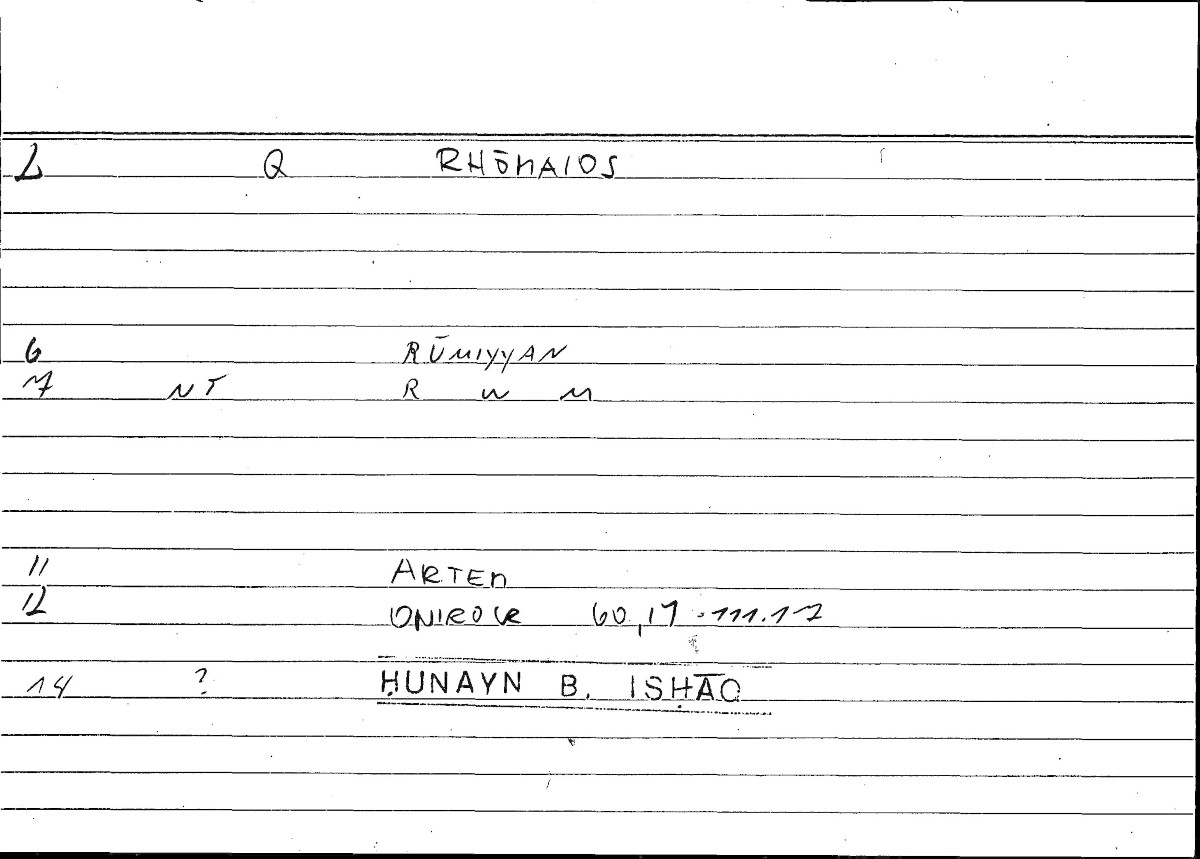 2 Q RHŌMAIOS
6 RŪMIYYAN
7 NT R W M
11 ARTEM
12 ONIROCR 60,17 - 111.17
14 ? ḤUNAYN B. ISḤĀQ